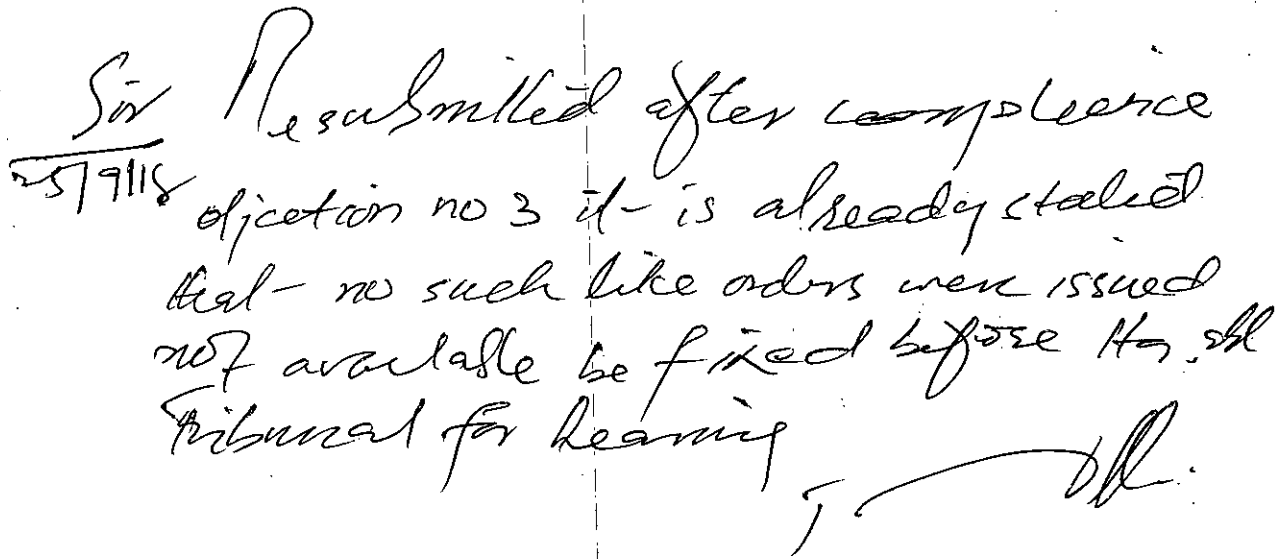 Sir Resubmitted after compleience
25/9/18
objection no 3 it- is already stated
that- no such like orders were issued
not available be fixed before Hon,ebl
Tribunal for hearing